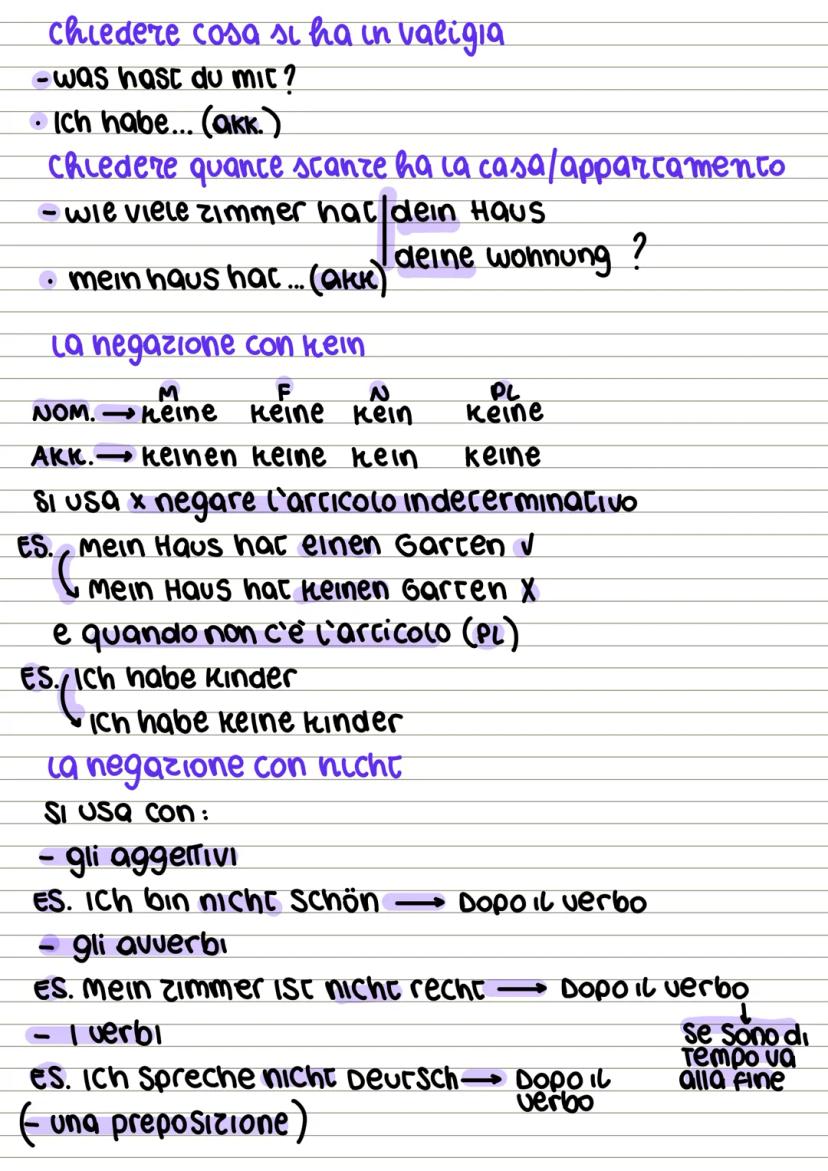 Chiedere cosa si ha in valigia
- was hast du mit?
· Ich habe... (akk.)
Chiedere quante stanze ha la casa/appartamento
- wie viele zimmer hat | dein Haus
deine wohnung ?
· mein haus hat ... (akk)
La negazione con kein
M F N PL
NOM. → keine keine kein keine
AKK. → keinen keine kein keine
Si usa x negare l'articolo indeterminativo
ES. mein Haus hat einen Garten √
mein Haus hat keinen Garten X
e quando non c'è l'articolo (PL)
ES. Ich habe kinder
Ich habe keine kinder
La negazione con nicht
Si usa con:
- gli aggettivi
ES. Ich bin nicht schön → Dopo il verbo
- gli avverbi
ES. mein zimmer ist nicht recht → Dopo il verbo
↓
- I verbi se sono di
tempo va
ES. Ich spreche nicht Deutsch → Dopo il alla fine
verbo
(- una preposizione)